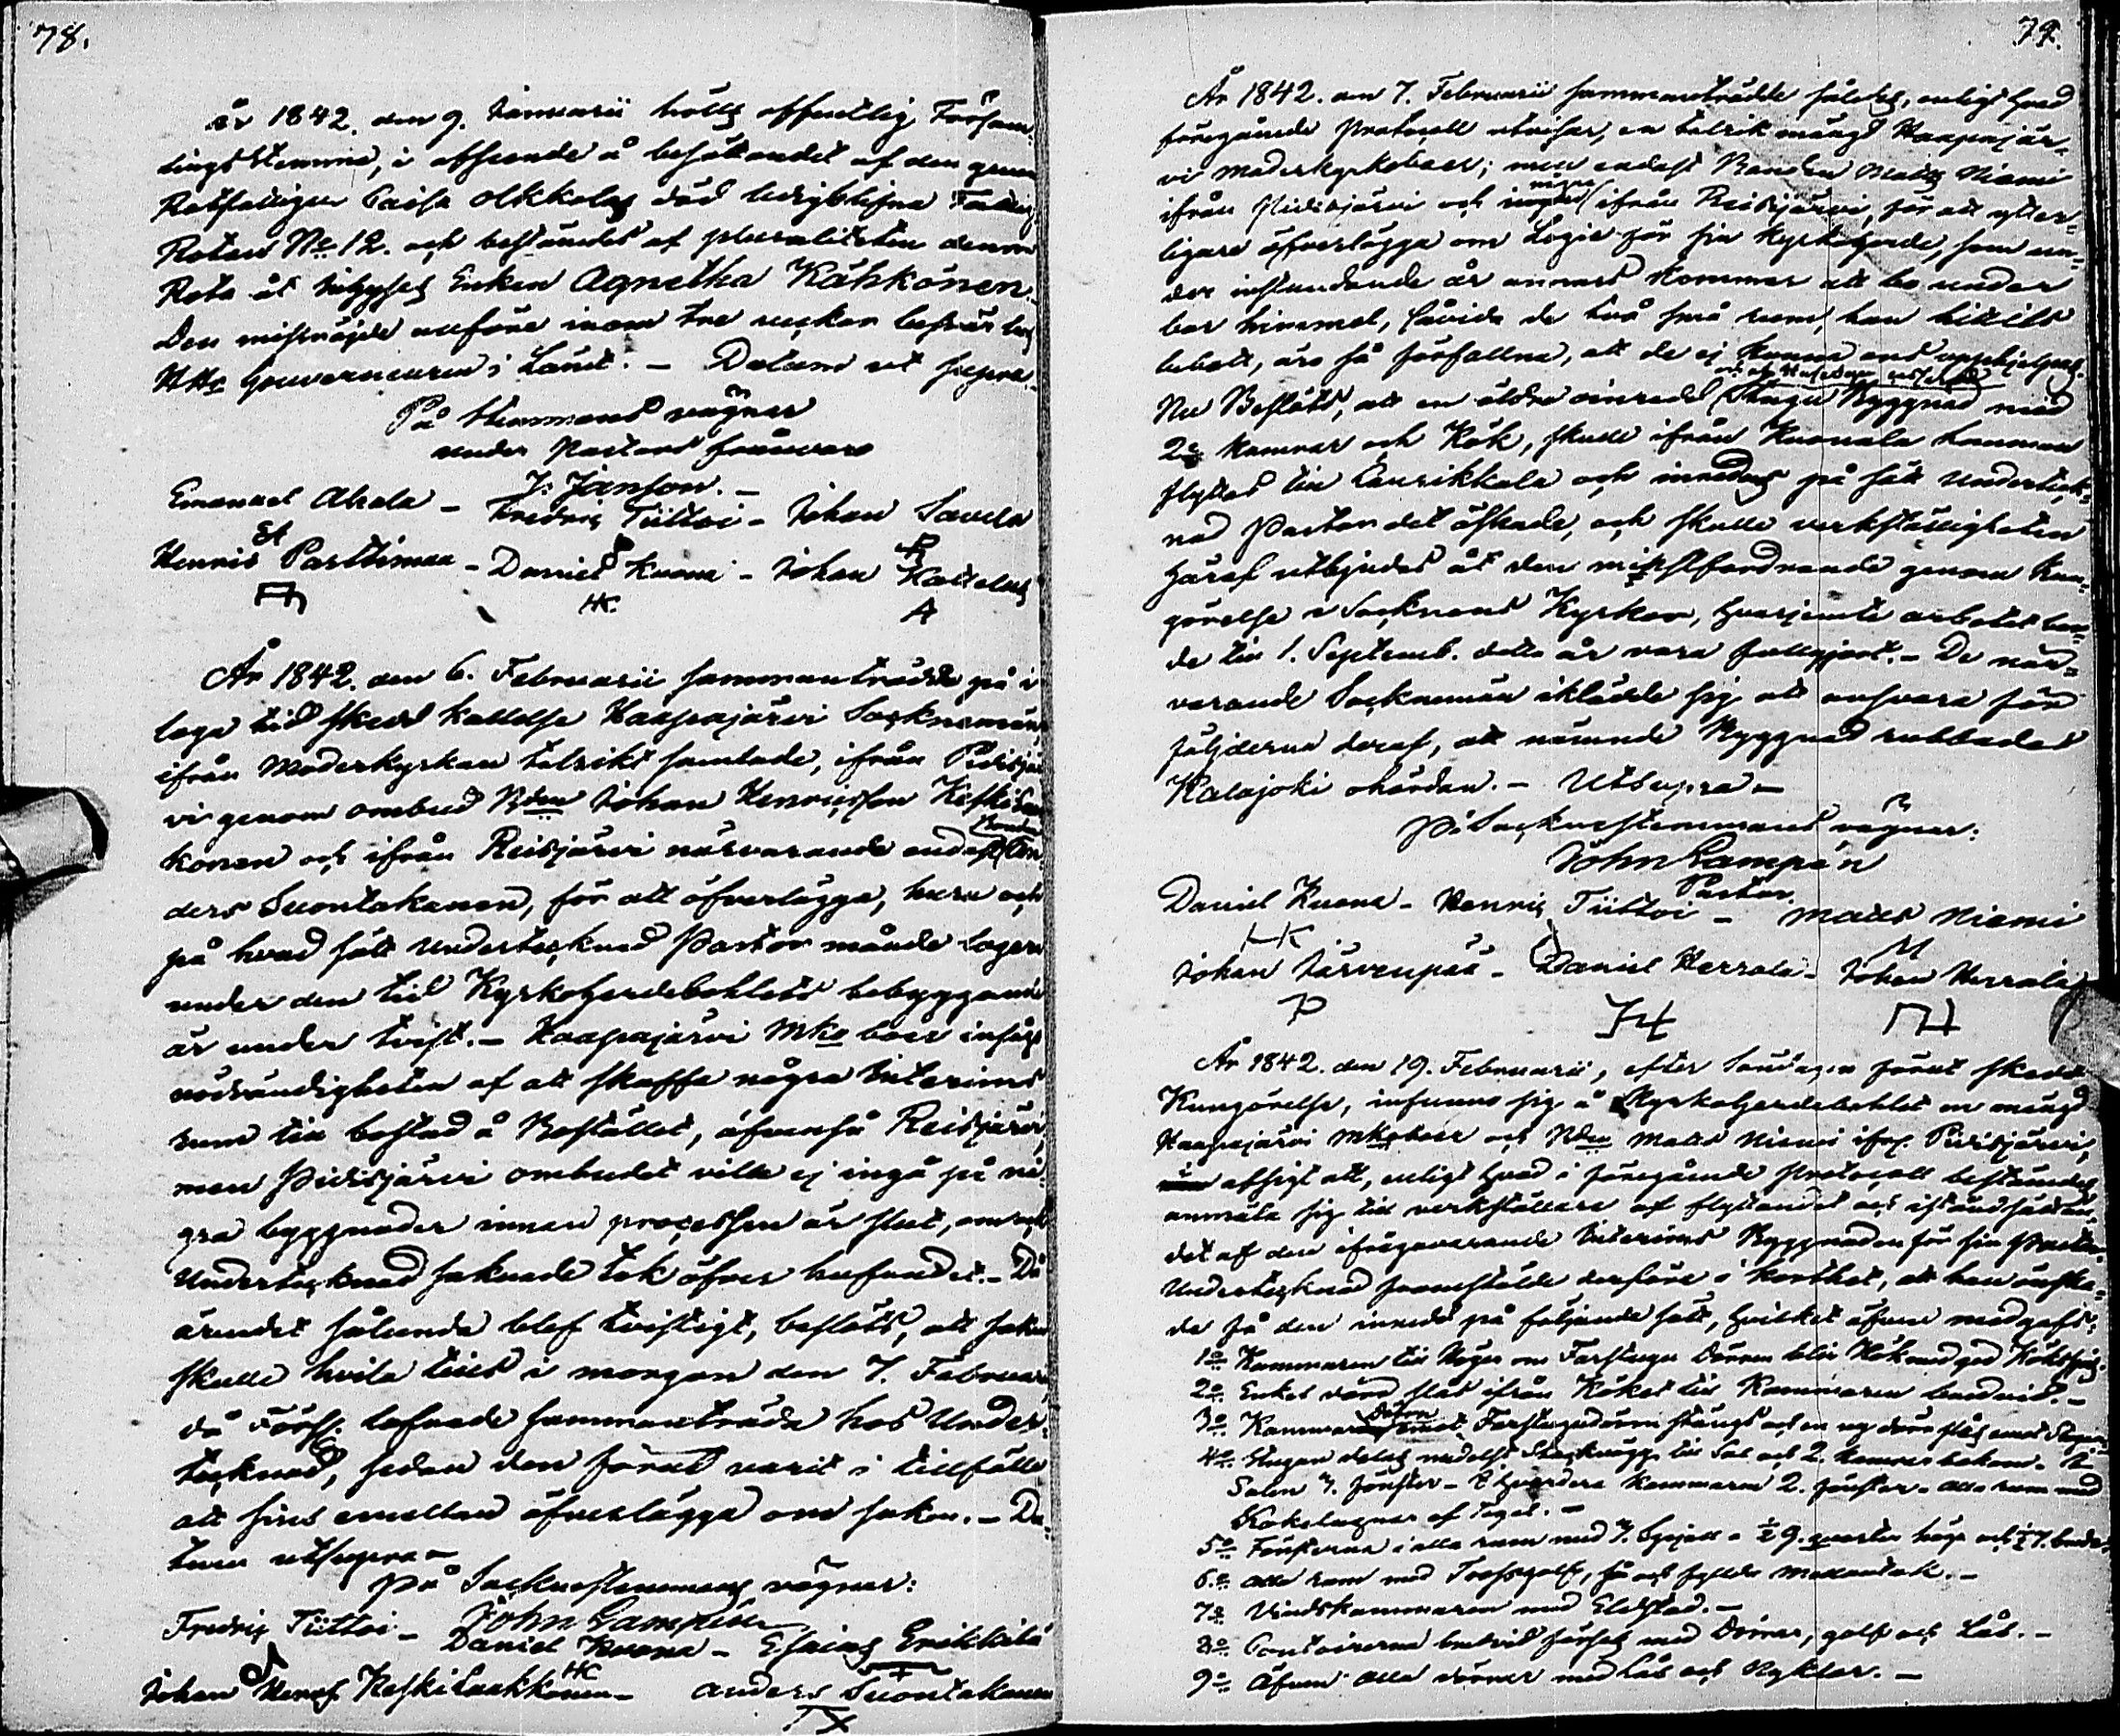 78.
År 1842. den 9. Januarii hölls offentlig Församl
lings Stemma, i afseende å besättandet af den genom
Rotfattigen Caisa Olkkolas död ledigblifna Fattig
Rotan No 12. och bestämdes af pluraliteten denna
Rota åt Inhyses Enkan Agnetha Kähkönen.
Den missnöjde anföre inom tre veckor besvär hos
HHr Gouverneuren i Länet. – Datum ut supra.
På Stemmans vägnar
under Pastors frånvaro
J. Janson. –
Emanuel Ahola – Fredric Tiittoi – Johan Savela
Henric Parttimaa – Daniel Kuona – Johan Kattelus
HK. A
År 1842. den 6. Februarii sammanträdde på i
laga tid skedd kallelse Haapajärvi Socknemän,
ifrån Moderkyrkan talrikt samlade, ifrån Pidisjär
vi genom ombud Bden Johan Henricsson KeskiLaa
konen och ifrån Reisjärvi närvarande endast Bonden An
ders Suontakanen, för att öfverlägga, huru och
på hvad sätt Undertecknad Pastor månde logeras
under den tid Kyrkoherdebohlets bebyggande
är under tvist. – Haapajärvi Mko boer insågo
nödvändigheten af att skaffa några Interims
rum till bostad å Bostället, äfvenså Reisjärvi,
men Pidisjärvi ombudet ville ej ingå på nå
gra byggnader innan processen är slut, om ock
Undertecknad saknade tak öfver hufvudet. – Då
ärendet sålunda blef tvistigt, beslöts, att saken
skulle hvila till i morgon den 7. Februarii
då Förs. lofvade sammanträda hos Under-
tecknad, sedan den förut varit i tillfälle
att sins emellan öfverlägga om saken. – Da-
tum utsupra –
På Sockenstemmans vägnar:
John Lampén
Fredric Tiittoi – Daniel Kuona – Esaias Erikkilä
HK
Johan Henr. KeskiLaakkonen – Anders Suontakanen
79.
År 1842. den 7. Februarii sammanträdde således, enligt hvad
föregående Protocoll utvisar, en talrik mängd Haapajär-
vi moderkyrkoboer; men endast Bonden Matts Niemi
ifrån Pidisjärvi och ingen ifrån Reisjärvi, för att ytter-
ligare öfverlägga om Logie för sin Kyrkoherde, som un-
der instundande år annars kommer att bo under
bar himmel, såvida de två små rum, han hittills
bebott, äro så förfallna, att de ej kunna ens upphjelpas.
Nu Beslöts, att en äldre oinredd Stugu Byggnad med
2ne kamrar och Kök, skulle ifrån Kuonala hemman
flyttas till Laurikkala och inredas på sätt Underteck-
nad Pastor det åstundade, och skulle verkställigheten
häraf utbjudas åt den minstfordrande genom kun-
görelse i Socknens Kyrkor, hvarjemte arbetet bor-
de till 1. Septemb. detta år vara fullgjort. – De när-
varande Socknemän iklädde sig att ansvara för
följderna deraf, att nämnde Byggnad rubbades
Kalajoki ohördan. – Utsupra –
På Sockenstemmans vägnar:
John Lampén
Pastor.
Daniel Kuona – Henric Tiittoi – Matts Niemi
HK M
Johan Järvenpää – Daniel Herrala – Johan Herrala
P
År 1842. den 19. Februarii, efter Söndagen förut skedd
Kungörelse, infunno sig å Kyrkoherdebohlet en mängd
Haapajärvi Mkoboer och Bden Matts Niemi ifrn. Pidisjärvi,
i afsigt att, enligt hvad i föregående Protocoll bestämdes
anmäla sig till verkställare af flyttandet och iståndsättan-
det af den ifrågavarande Interims Byggnaden för sin Pastor.
Undertecknad framstälde derföre i korthet, att han önska-
de få den inredd på följande sätt, hvilket äfven medgafs:
1o Kammaren till höger om Farstugu Dörren blir Kök med god Kökspis.
2o Enkel dörr slås ifrån Köket till Kammaren bredvid. –
3o Kammardörren emot Farstugudörrn stängs och en ny dörr slås emot Stugan
4o Stugan delas medelst Skeckvägg till Sal och 2. Kamrar bakom. –
Salen 4. fönster – hvardera kammaren 2. fönster – alla rum med
Kakelugnar af Tegel. –
5o Fönsterna i alla rum med 4. Spjell – 9. qvarter höga och 7. breda
6.o Alla rum med Trossgolf, så och fyllda mellantak. –
7o Vindskammaren med Eldstad. –
8o Contoirerna bredvid förses med Dörrar, golf och Lås. –
9o Äfven alla dörrar med Lås och Nycklar. –